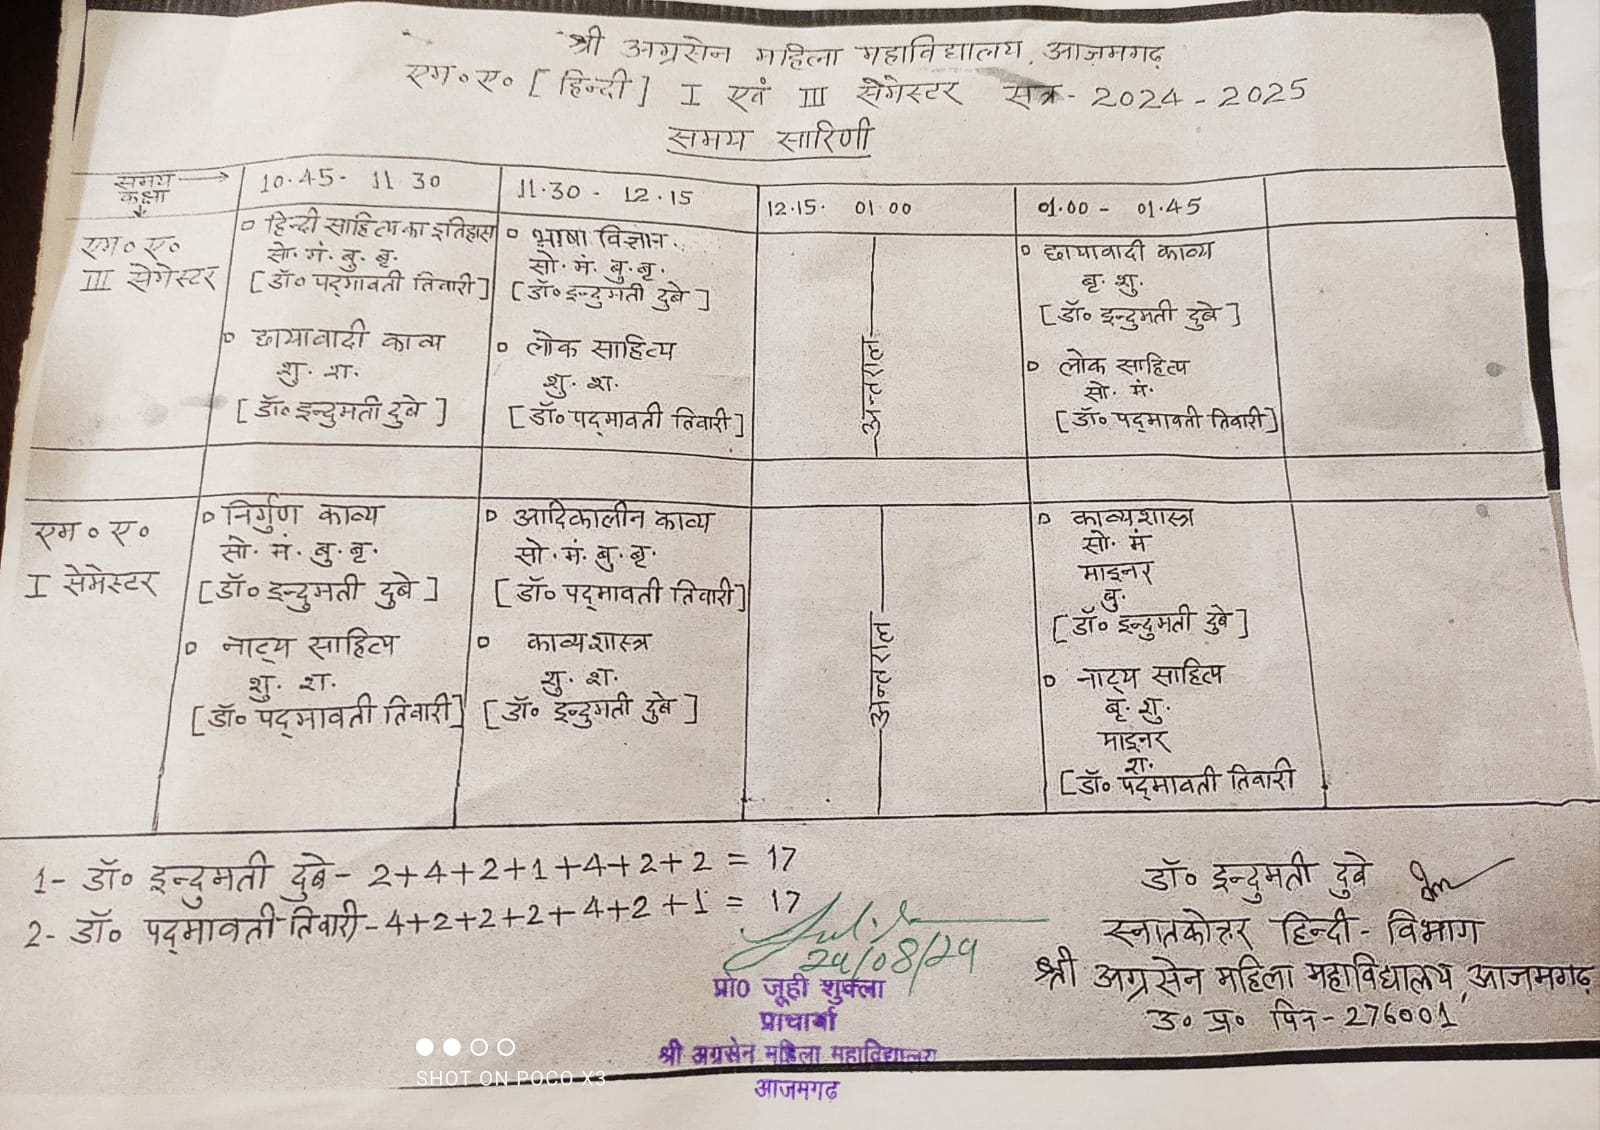 श्री अग्रसेन महिला महाविद्यालय, आज़मगढ़
एम॰ ए॰ [हिन्दी] I एवं III सेमेस्टर सत्र - 2024 - 2025
समय सारिणी
समय →
कक्षा ↓
10.45 - 11 30
11.30 - 12.15
12.15. 01 00
01.00 - 01.45
एम॰ ए॰
III सेमेस्टर
हिन्दी साहित्य का इतिहास
सो. मं. बु. बृ.
[डॉ॰ पद्मावती तिवारी]
छायावादी काव्य
शु. श.
[डॉ॰ इन्दुमती दुबे]
भाषा विज्ञान
सो. मं. बु. बृ.
[डॉ॰ इन्दुमती दुबे]
लोक साहित्य
शु. श.
[डॉ॰ पद्मावती तिवारी]
अन्तराल
छायावादी काव्य
बृ. शु.
[डॉ॰ इन्दुमती दुबे]
लोक साहित्य
सो. मं.
[डॉ॰ पद्मावती तिवारी]
एम॰ ए॰
I सेमेस्टर
निर्गुण काव्य
सो. मं. बु. बृ.
[डॉ॰ इन्दुमती दुबे]
नाट्य साहित्य
शु. श.
[डॉ॰ पद्मावती तिवारी]
आदिकालीन काव्य
सो. मं. बु. बृ.
[डॉ॰ पद्मावती तिवारी]
काव्यशास्त्र
शु. श.
[डॉ॰ इन्दुमती दुबे]
अन्तराल
काव्यशास्त्र
सो. मं
माइनर
बु.
[डॉ॰ इन्दुमती दुबे]
नाट्य साहित्य
बृ. शु.
माइनर
श.
[डॉ॰ पद्मावती तिवारी
1- डॉ॰ इन्दुमती दुबे - 2+4+2+1+4+2+2 = 17
2- डॉ॰ पद्मावती तिवारी - 4+2+2+2+4+2+1 = 17
24/08/24
प्रो0 जूही शुक्ला
प्राचार्या
श्री अग्रसेन महिला महाविद्यालय
आजमगढ़
डॉ॰ इन्दुमती दुबे
स्नातकोत्तर हिन्दी - विभाग
श्री अग्रसेन महिला महाविद्यालय, आजमगढ़
उ॰ प्र॰ पिन - 276001
SHOT ON POCO X3